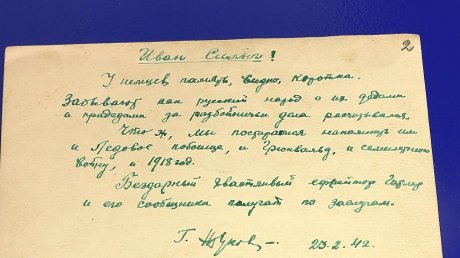 2
Иван Силыч!
У немцев память, видно, коротка.
Забывают как русский народ с их дедами
и прадедами за разбойничьи дела расчитывался.
Что ж, мы постараемся напомнить им
и Ледовое побоище, и Грюнвальд, и семилетнюю
войну, и 1918 год.
Бездарный хвастливый ефрейтор Гитлер
и его сообщники получат по заслугам.
Г. Жуков
23.2.42.